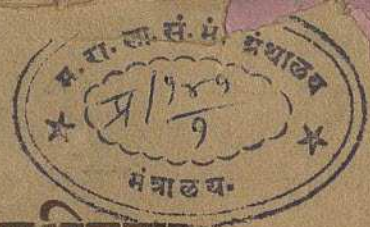 म. रा. ला. सं. मं. ग्रंथालय
प्र/१४१
१
मंत्रालय.